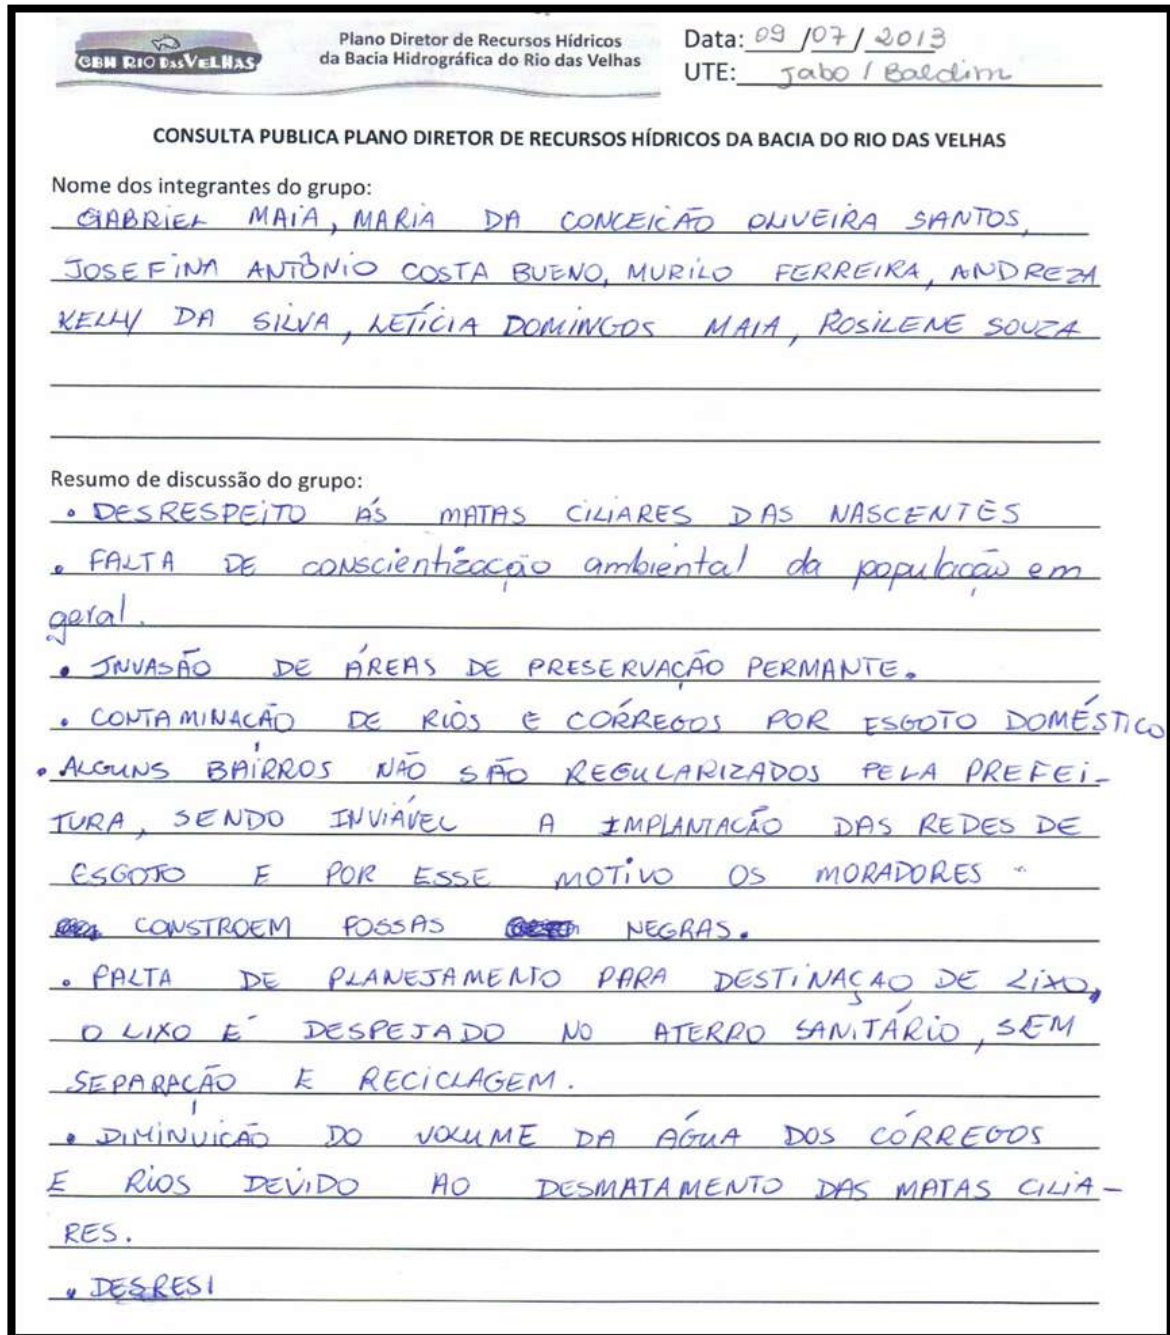 CBH RIO DAS VELHAS
Plano Diretor de Recursos Hídricos
da Bacia Hidrográfica do Rio das Velhas
Data: 09 /07/ 2013
UTE: Jabo / Baldim
CONSULTA PUBLICA PLANO DIRETOR DE RECURSOS HÍDRICOS DA BACIA DO RIO DAS VELHAS
Nome dos integrantes do grupo:
GABRIEL MAIA, MARIA DA CONCEICÃO OLIVEIRA SANTOS,
JOSEFINA ANTÔNIO COSTA BUENO, MURILO FERREIRA, ANDREZA
KELLY DA SILVA, LETÍCIA DOMINGOS MAIA, ROSILENE SOUZA
Resumo de discussão do grupo:
• DESRESPEITO ÁS MATAS CILIARES DAS NASCENTES
• FALTA DE conscientização ambiental da população em
geral.
• INVASÃO DE ÁREAS DE PRESERVAÇÃO PERMANTE.
• CONTAMINAÇÃO DE RIOS E CÓRREGOS POR ESGOTO DOMÉSTICO
• ALGUNS BAIRROS NÃO SÃO REGULARIZADOS PELA PREFEI-
TURA, SENDO INVIÁVEL A IMPLANTACÃO DAS REDES DE
ESGOTO E POR ESSE MOTIVO OS MORADORES
CONSTROEM FOSSAS NEGRAS.
• FALTA DE PLANEJAMENTO PARA DESTINAÇAO DE LIXO,
O LIXO É DESPEJADO NO ATERRO SANITÁRIO, SEM
SEPARAÇÃO E RECICLAGEM.
• DIMINUICÃO DO VOLUME DA ÁGUA DOS CÓRREGOS
E RIOS DEVIDO AO DESMATAMENTO DAS MATAS CILIA-
RES.
• DESRESI